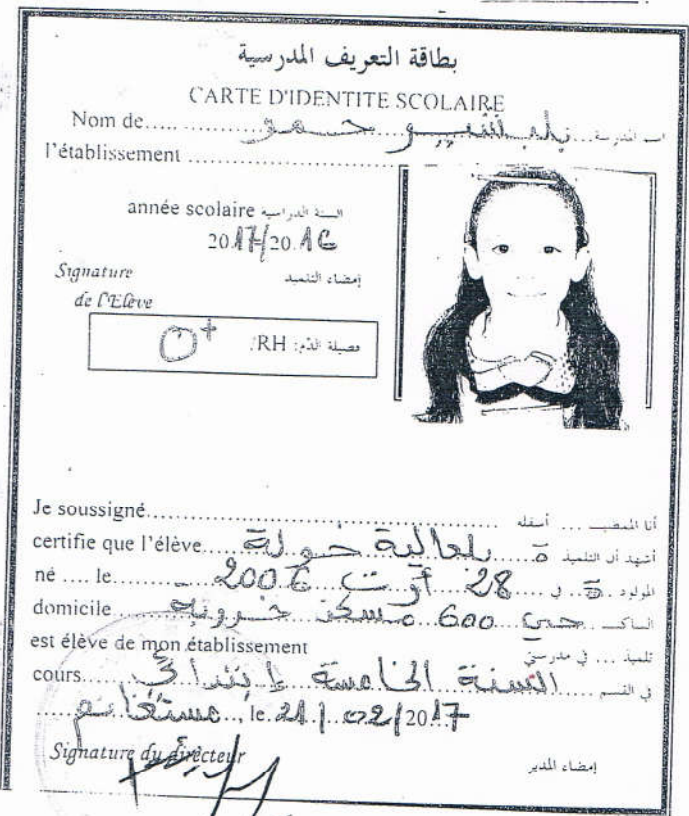 بطاقة التعريف المدرسية
CARTE D'IDENTITE SCOLAIRE
Nom de..... حمو ..... اسم المدرسة
l'établissement
année scolaire السنة الدراسية
2017/2016
Signature إمضاء التلميذ
de l'Elève
O+ فصيلة الدم: RH
Je soussigné ..... أنا الممضي ... أسفله
certifie que l'élève..... بلعالية خولة ..... أشهد أن التلميذ ة
né .... le..... 28 أوت 2006 ..... المولود ة في
domicile ..... حي 600 مسكن خروبة ..... الساكن
est élève de mon établissement تلميذ ... في مدرستي
cours..... السنة الخامسة إبتدائي ..... في القسم
مستغانم, le 21/02/2017
Signature du directeur إمضاء المدير